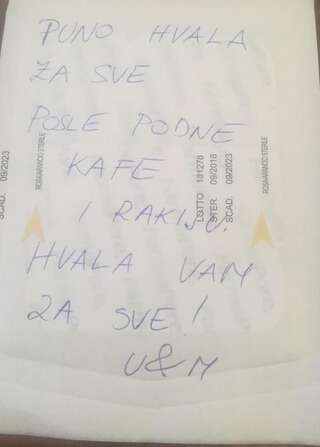 PUNO HVALA
ZA SVE
POSLE PODNE
KAFE
I RAKIJU.
HVALA VAM
ZA SVE!
U&M
SCAD. 09/2023
ROSA/ARANCIO STERILE
LOTTO 181276
STER. 09/2018
SCAD. 09/2023
ROSA/ARANCIO STERILE